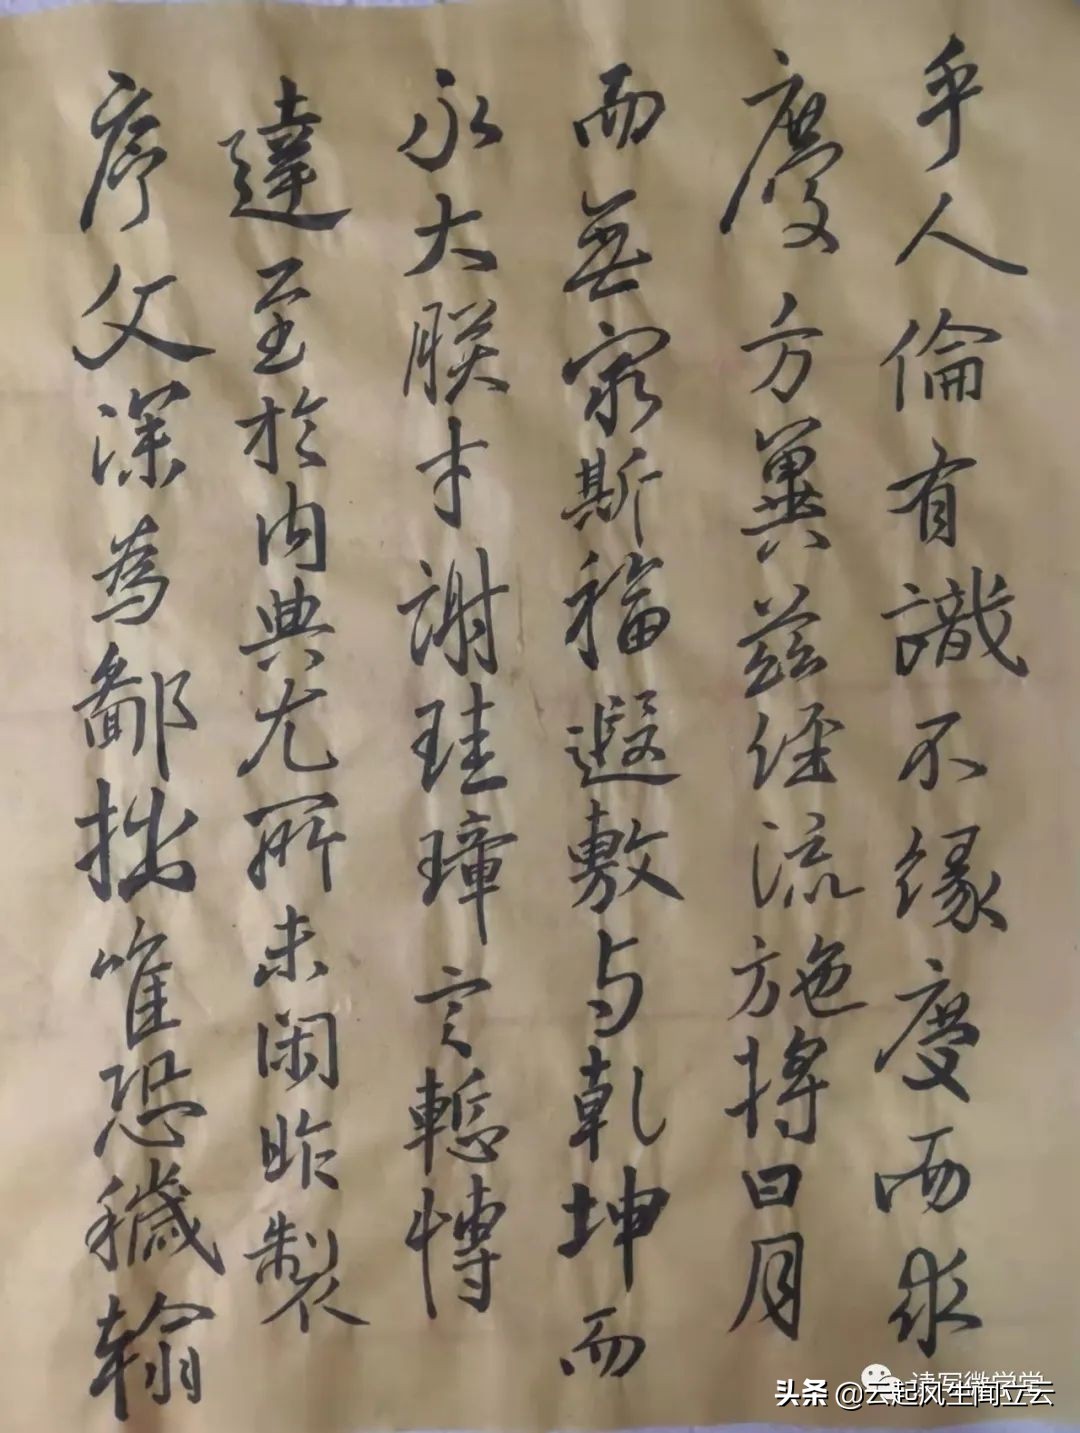 乎人倫有識不緣慶而求
慶方冀茲經流施將日月
而無窮斯福遐敷与乾坤而
永大朕才謝珪璋言慙博
達至於内典尤所未閑昨製
序文深為鄙拙唯恐穢翰
读写微学堂
头条 @云起风生闻立云